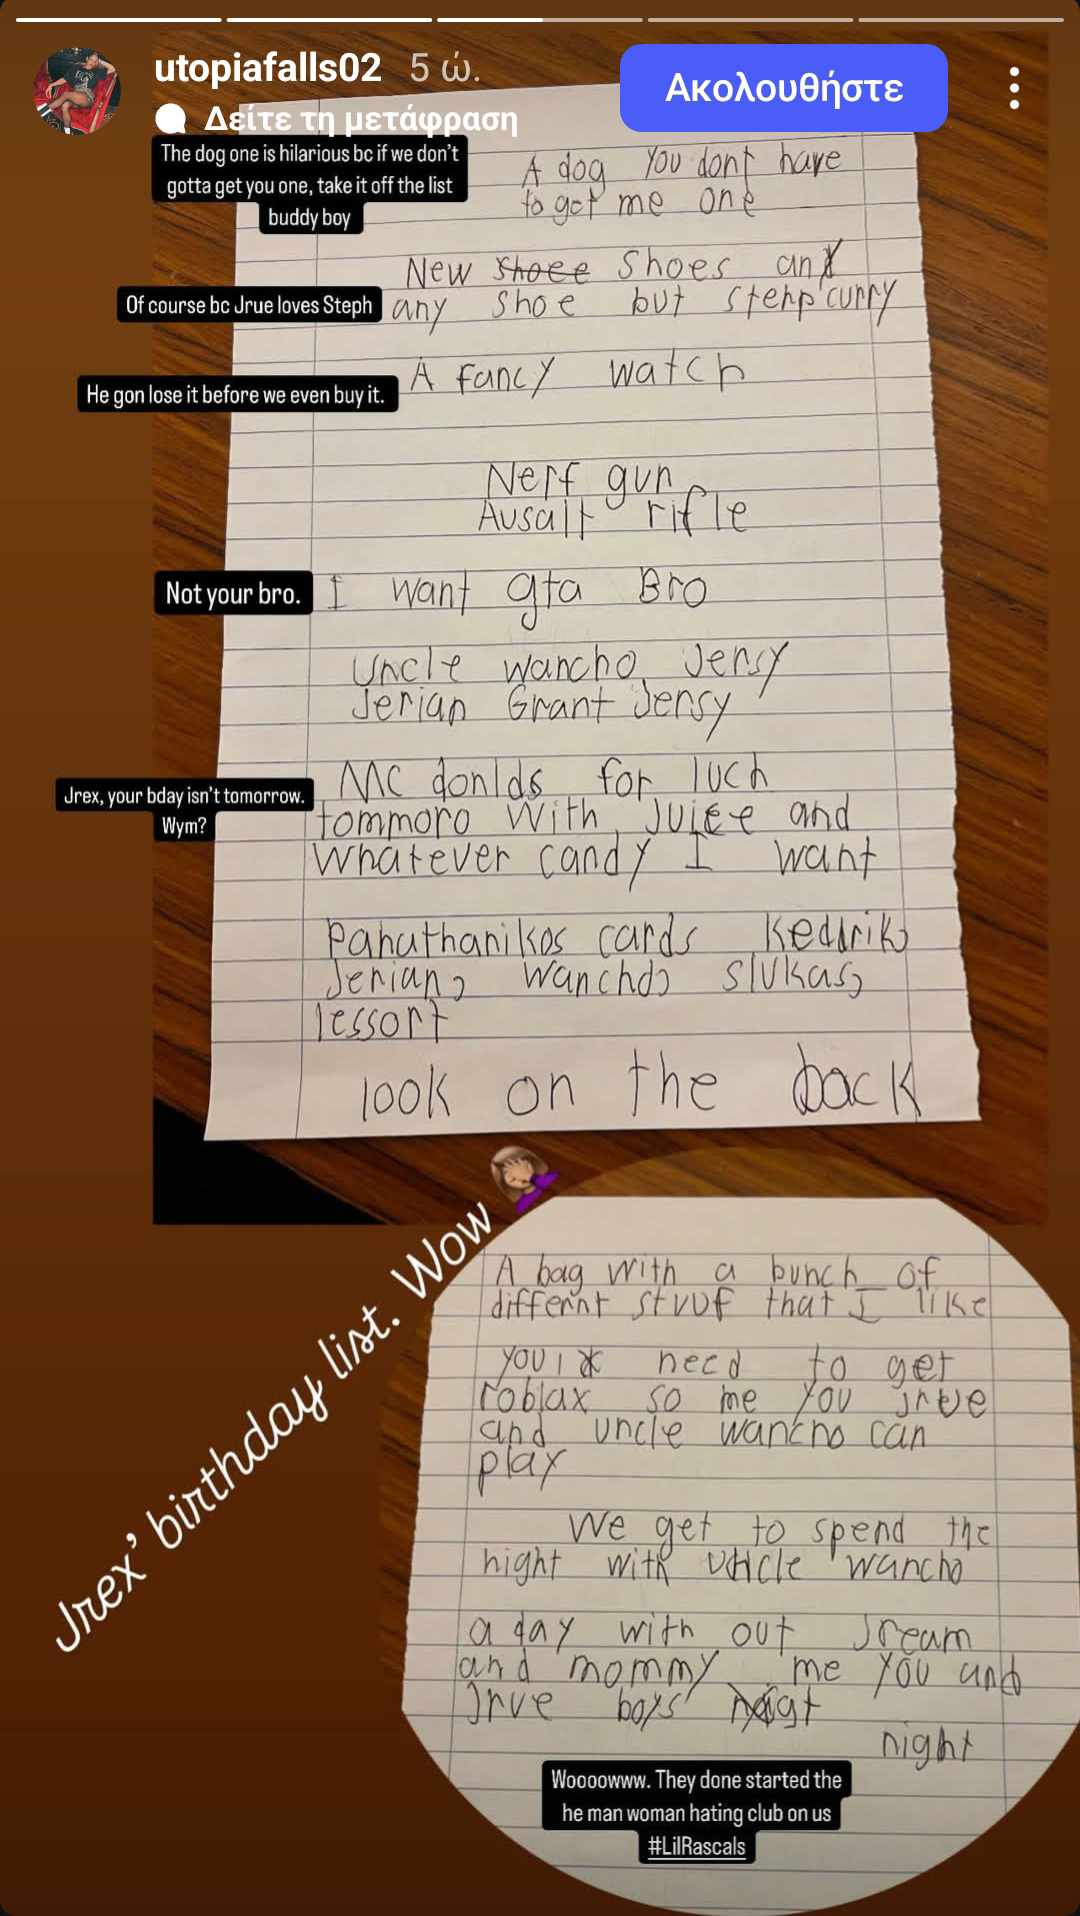 utopiafalls02 5 ώ.
Ακολουθήστε
Δείτε τη μετάφραση
The dog one is hilarious bc if we don't
gotta get you one, take it off the list
buddy boy
A dog you dont have
to get me one
New shoee shoes and
Of course bc Jrue loves Steph
any shoe but stehp curry
A fancy watch
He gon lose it before we even buy it.
Nerf gun
Ausalt rifle
Not your bro.
I want gta Bro
Uncle wancho Jersy
Jerian Grant Jersy
Jrex, your bday isn't tomorrow.
Wym?
Mc donlds for luch
tommoro with juice and
whatever candy I want
Panathanikos cards Keddrik,
Jerian, wancho, slukas,
lessort
look on the back
Jrex' birthday list. Wow
A bag with a bunch of
differnt stuuf that I like
need to get
roblax so me you Jrue
and uncle wancho can
play
We get to spend the
night with uncle wancho
a day with out Jream
and mommy me you and
Jrue boys
night
Woooowww. They done started the
he man woman hating club on us
#LilRascals